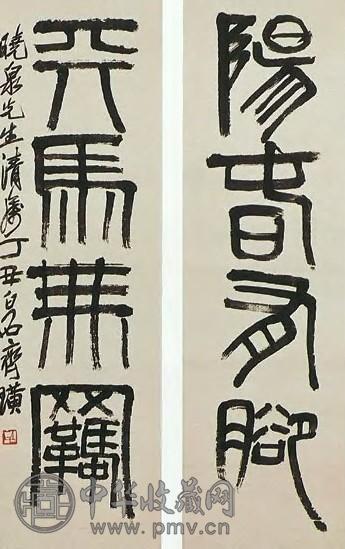 陽春有腳
天馬無羈
曉泉先生清屬丁丑白石齊璜
中华收藏网
www.pmv.cn